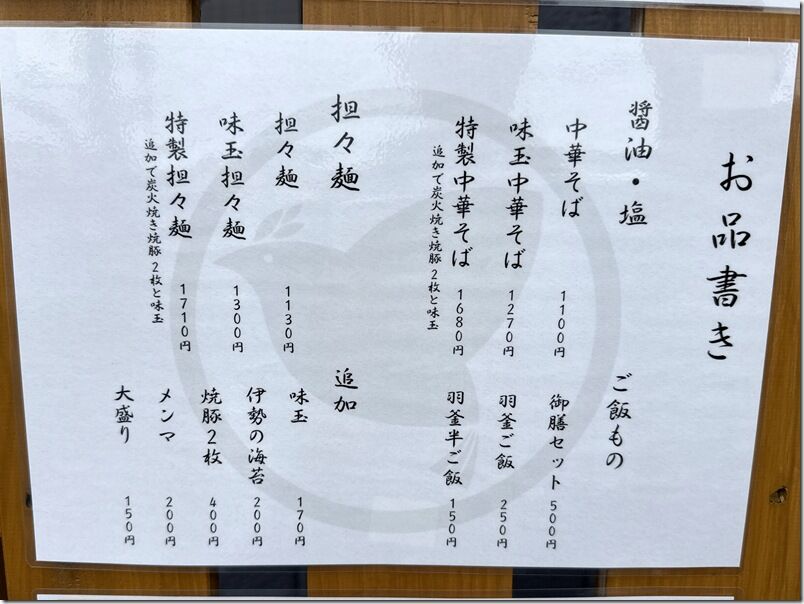 お品書き
醤油・塩
中華そば 1100円
味玉中華そば 1270円
特製中華そば 1680円
追加で炭火焼き焼豚2枚と味玉
担々麺
担々麺 1130円
味玉担々麺 1300円
特製担々麺 1710円
追加で炭火焼き焼豚2枚と味玉
ご飯もの
御膳セット 500円
羽釜ご飯 250円
羽釜半ご飯 150円
追加
味玉 170円
伊勢の海苔 200円
焼豚2枚 400円
メンマ 200円
大盛り 150円